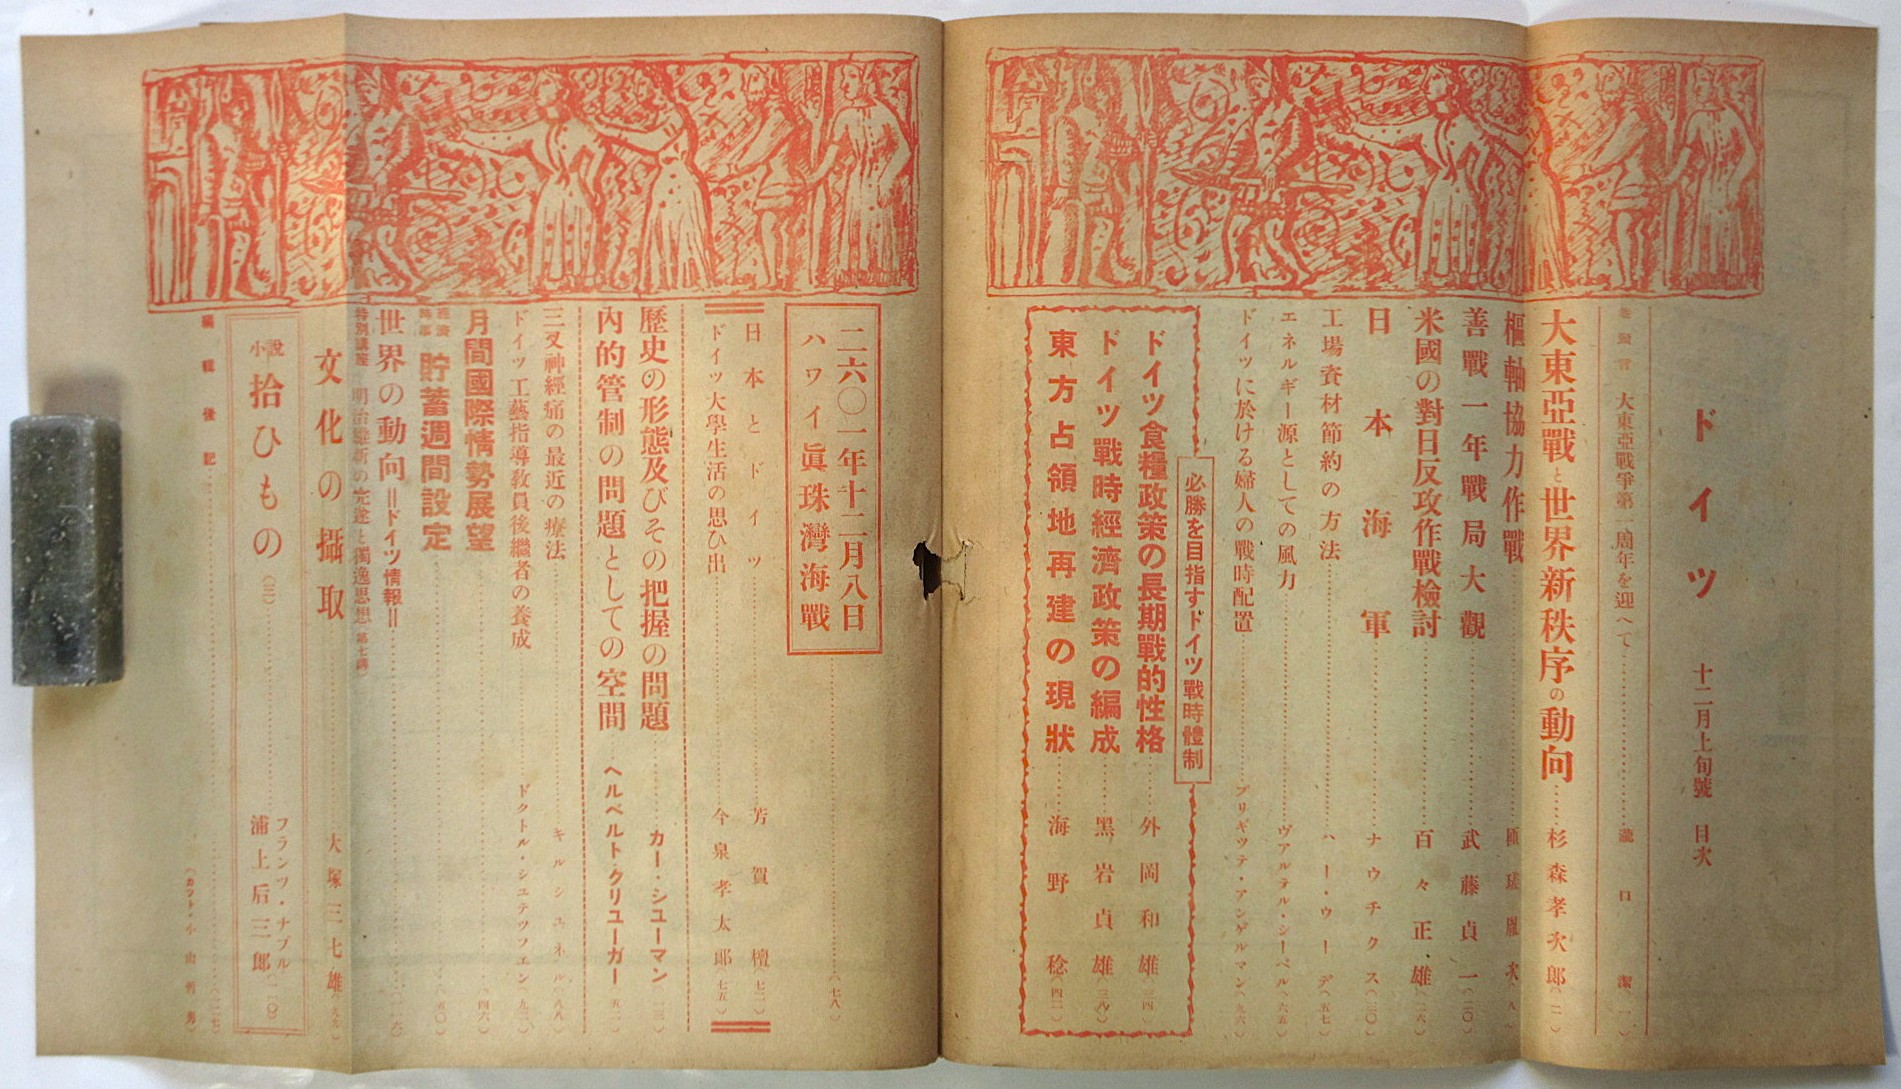 ドイツ 十二月上旬號 目次
卷頭言 大東亞戰爭第一周年を迎へて 瀧口潔(一)
大東亞戰と世界新秩序の動向 杉森孝次郎(二)
樞軸協力作戰
善戰一年戰局大觀 武藤貞一(二〇)
米國の對日反攻作戰檢討 百々正雄(二六)
日本海軍 ナウチクス(三〇)
工場資材節約の方法 ハー・ウーデ(五七)
エネルギー源としての風力 ヴアルテル・シーベル(六五)
ドイツに於ける婦人の戰時配置 ブリギツテ・アンゲルマン(九六)
必勝を目指すドイツ戰時體制
ドイツ食糧政策の長期戰的性格 外岡和雄(三四)
ドイツ戰時經濟政策の編成 黑岩貞雄(三八)
東方占領地再建の現狀 海野稔(四二)
二六〇一年十二月八日
ハワイ眞珠灣海戰 (七八)
日本とドイツ 芳賀檀(七二)
ドイツ大學生活の思ひ出 今泉孝太郎(七五)
歷史の形態及びその把握の問題 カー・シユーマン(一三)
內的管制の問題としての空間 ヘルベルト・クリユーガー(五一)
三叉神經痛の最近の療法 キルシユネル(八八)
ドイツ工藝指導敎員後繼者の養成 ドクトル・シユテツフエン(九二)
月間國際情勢展望 (四六)
經濟時事 貯蓄週間設定 (五〇)
世界の動向=ドイツ情報= (一一六)
特別講座 明治維新の完遂と獨逸思想(第七講)
文化の攝取 大塚三七雄(九九)
小說 拾ひもの(三) フランツ・ナブル 浦上后三郎(一一〇)
編輯後記 (一二七)
(カツト・小山